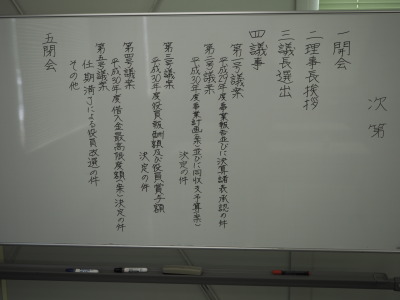 次第
一 開会
二 理事長挨拶
三 議長選出
四 議事
第一号議案
平成29年度事業報告並びに決算諸表承認の件
第二号議案
平成30年度事業計画(案)並びに同収支予算(案)
決定の件
第三号議案
平成30年度役員報酬額及び役員賞与額
決定の件
第四号議案
平成30年度借入金最高限度額(案)決定の件
第五号議案
任期満了による役員改選の件
その他
五 閉会